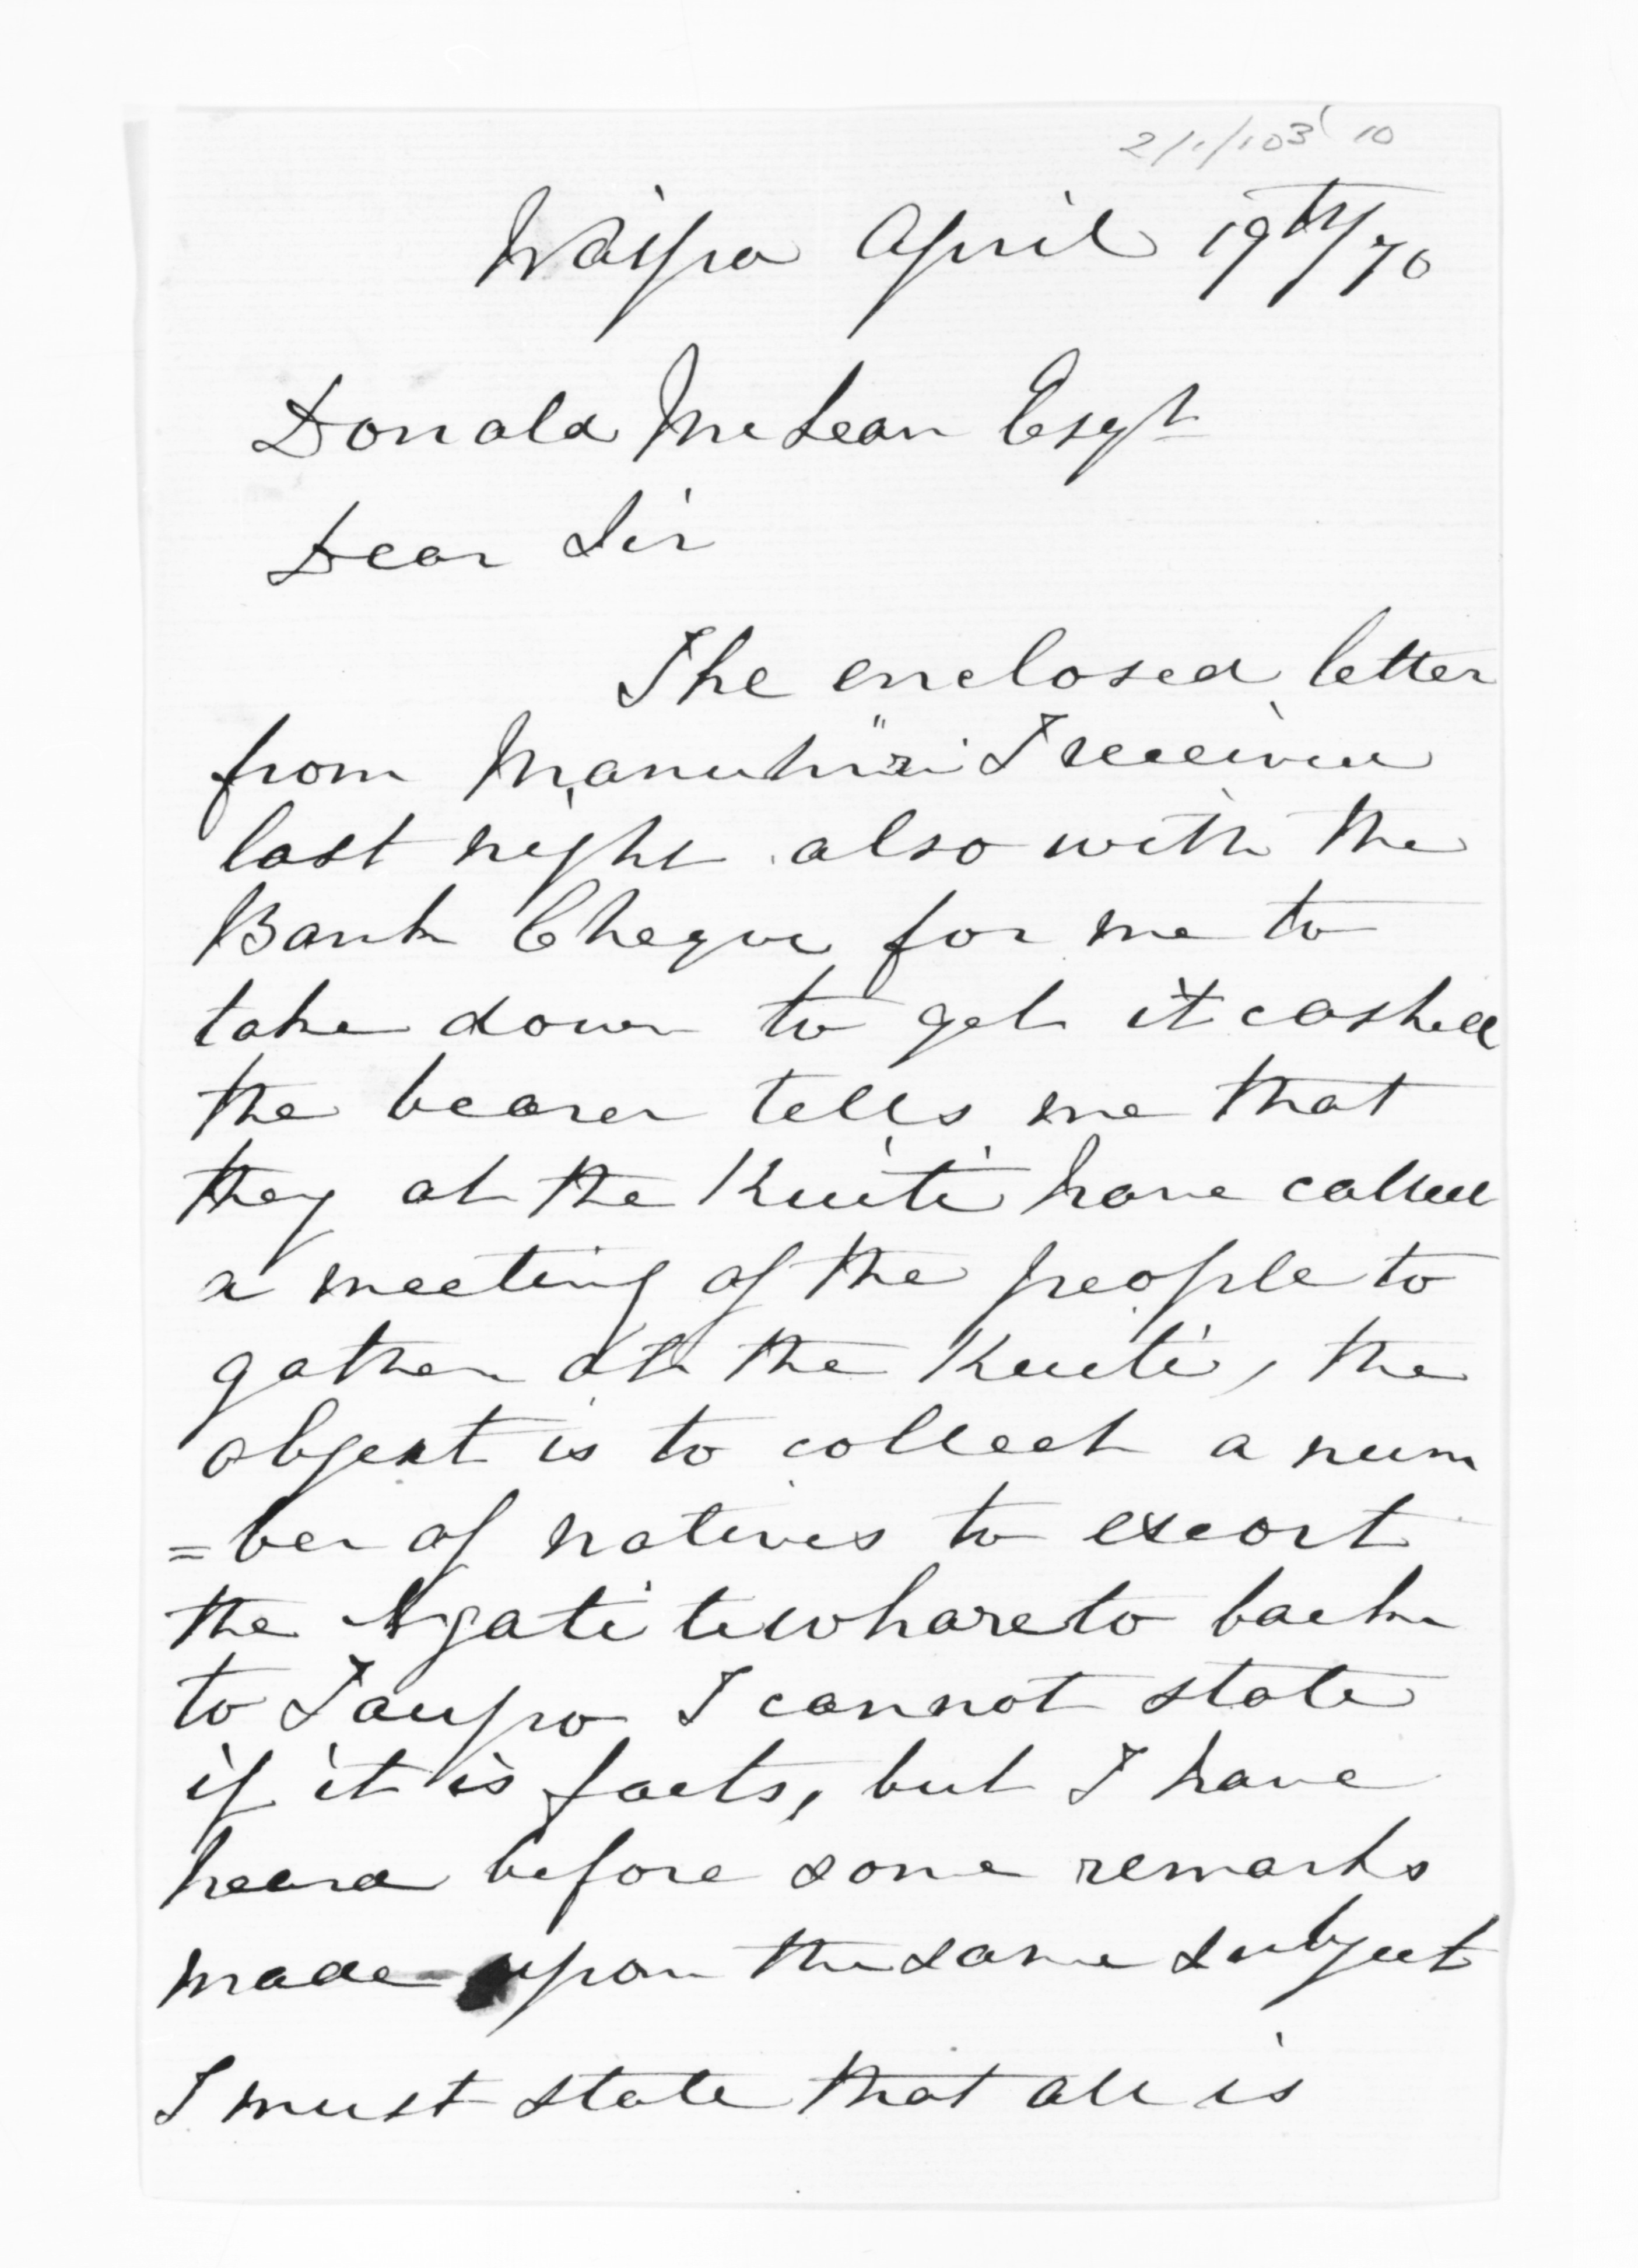 2/1/103 10
Waipa April 19th/70
Donald McLean Esqr
Dear Sir
The enclosed letter
from Manuhiri I received
last night also with the
Bank Cheque for me to
take down to get it cashed
the bearer tells me that
they at the Kuiti have called
a meeting of the people to
gather at the Kuiti, the
object is to collect a num
=ber of natives to escort
the Ngatitewhareto back
to Taupo I cannot state
if it is facts, but I have
heard before some remarks
made upon the same subject
I must state that all is